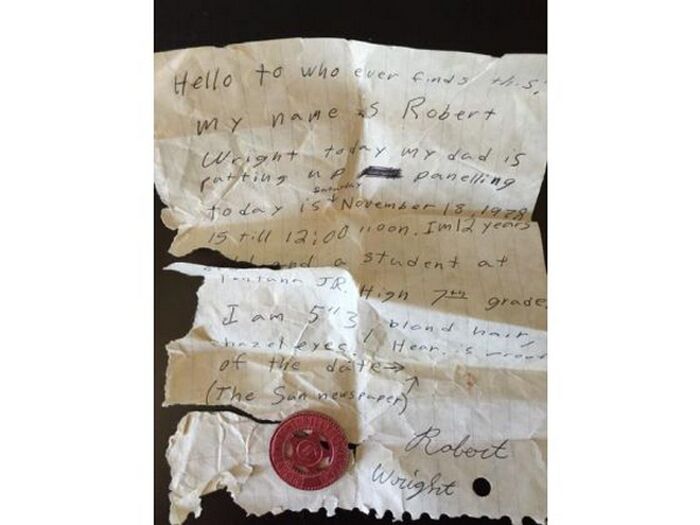 Hello to who ever finds this.
my name is Robert
Wright today my dad is
putting up panelling
Saturday
today is November 18, 1978
is till 12:00 noon. Im 12 years
old and a student at
Fontana JR. High 7th grade.
I am 5"3, blond hair,
hazel eyes. Hear is
of the date →
(The Sun newspaper)
Robert
Wright